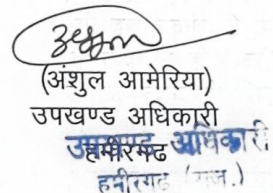 (अंशुल आमेरिया)
उपखण्ड अधिकारी
हमीरगढ
उपखण्ड अधिकारी
हमीरगढ़ (राज.)